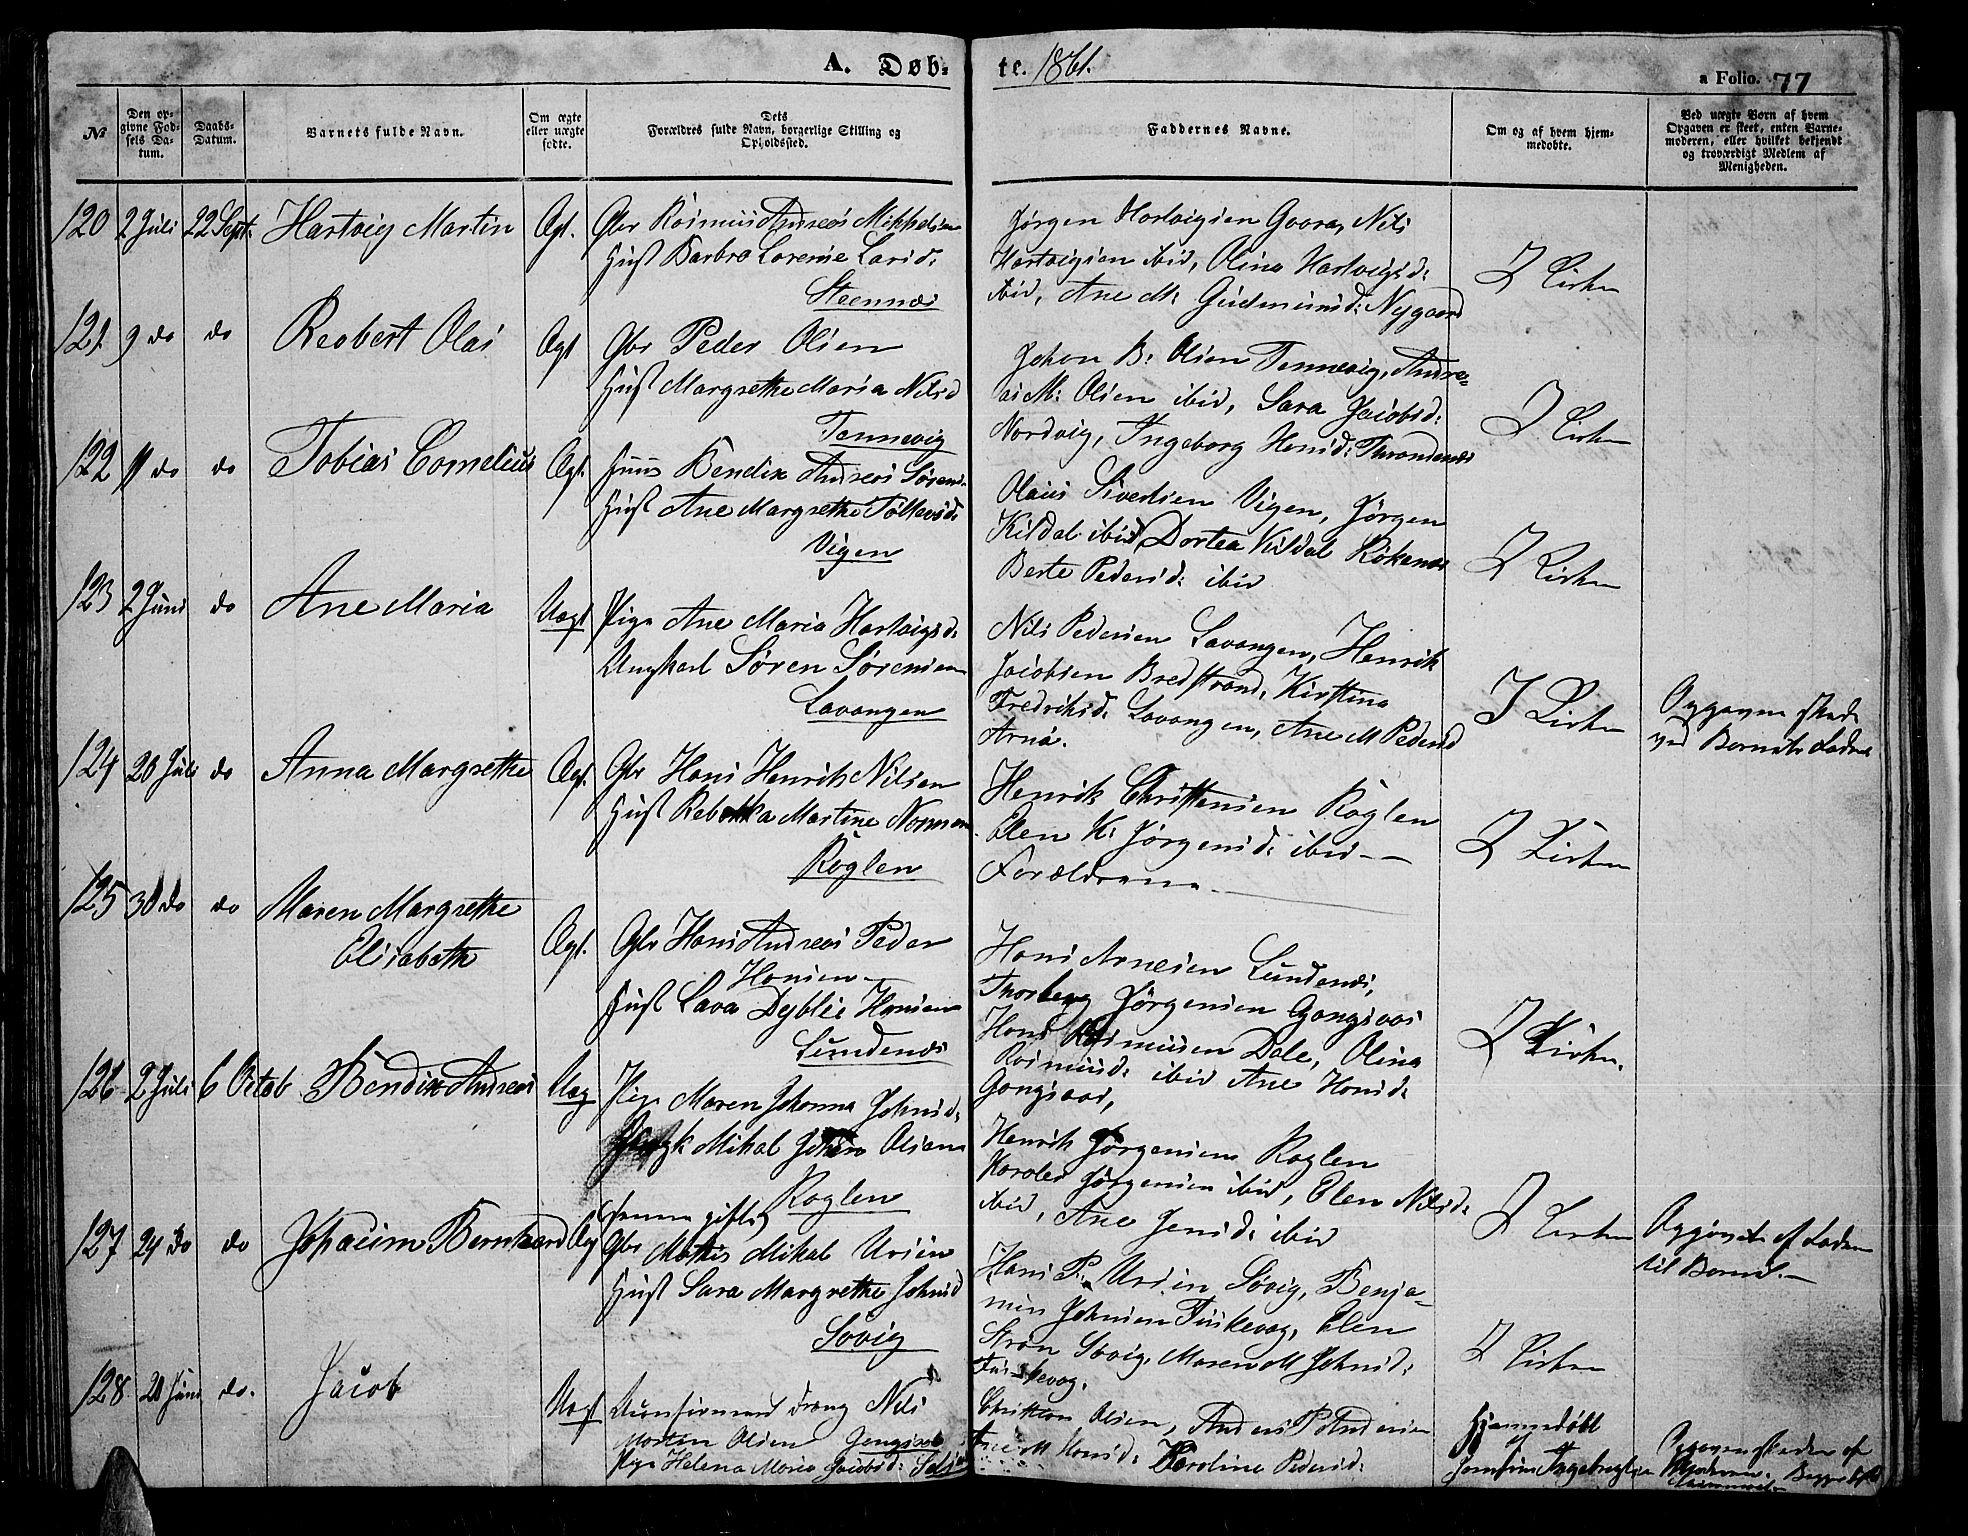 A. Døb- te. 1861.
a Folio. 77
No
Den op-
givne Fød-
sels Da-
tum.
Daabs-
Datum.
Barnets fulde Navn.
Om ægte
eller uægte
fødte.
Dets
Forældres fulde Navn, borgerlige Stilling og
Opholdssted.
Faddernes Navne.
Om og af hvem hjem-
medøbte.
Ved uægte Børn af hvem
Opgaven er skeet, enten Barne-
moderen, eller hvilket bekjendt
og troværdigt Medlem af
Menigheden.
120 2 Juli 22 Sept. Hartvig Martin Ægt. Gbr Rasmus Andreas Mikkelsen
Hust Barbra Lorense Larsd:
Steennæs
Jørgen Hartvigsen Gaara, Nils
Hartvigsen ibid, Olina Hartvigsd:
ibid, Ane M: Gudmunsd: Nygaard
I Kirken
121. 9 do do Reobert Olai Ægt Gbr Peder Olsen
Hust Margrethe Maria Nilsd
Tennevig
Johan B: Olsen Tennevig, Andre-
as M: Olsen ibid, Sara Jacobsd:
Nordvig, Ingeborg Hansd: Throndenæs
I Kirken
122 11 do do Tobias Cornelius Ægt. Huus Bendix Andreas Sørens.
Hust Ane Margrethe Tollevsd:
Vigen
Olaus Sivertsen Vigen, Jørgen
Kildal ibid, Dortea Kildal Røkenæs
Berte Pedersd: ibid
I Kirken
123 2 Juni do Ane Maria Uægt Pige Ane Maria Hartvigsd:
Ungkarl Søren Sørensen
Lavangen
Nils Pedersen Lavangen, Henrik
Jacobsen Bredstrand, Kirstina
Fredriksd: Lavangen, Ane M Pedersd
Arnø.
I Kirken
Opgaven skede
ved Barnets Fader
124 20 Juli do Anna Margrethe Ægt. Gbr Hans Henrik Nilsen
Hust Rebekka Martine Norman
Røglen
Henrik Christensen Røglen
Elen K: Jørgensd: ibid
Forældrene
I Kirken
125 30 do do Maren Margrethe
Elisabeth Ægt. Gbr Hans Andreas Peder
Hansen
Hust Lava Dyblie Hansen
Lundenæs
Hans Arnesen Lundenæs,
Thorberg Jørgensen Gangsaas
Hans Rasmusen Dale, Olina
Rasmusd: ibid Ane Hansd:
Gangsaas,
I Kirken.
126 2 Juli 6 Octob Bendix Andreas Uæg Pige Maren Johanna Johnsd:
Mikal Johan Olsen
Roglen
Henrik Jørgensen Roglen
Karoles Jørgensen ibid, Elen Nilsd:
ibid, Ane Jensd: ibid
I Kirken
Opgivet af Faderen
til Barnet.
127 24 do do Johacim Bernhard Æg Gbr Mathis Mikal Ursin
Hust Sara Margrethe Johnsd
Søvig
Hans P. Ursin Søvig, Benja-
min Johnsen Fuskevåg, Elen
Strøm Søvig, Maren M Johnsd:
Fuskevåg.
I Kirken
128 20 Juni do. Jacob Uægt Uconfirmeret dreng Nils
Morten Olsen Gangsaas
Pige Helena Maria Jacobsd:
Christian Olsen, Anders P Andersen
Ane M Hansd: Karoline Pedersd:
Hjemmedøbt
af
Ingebregtsen
Opgaven skeden af
Moderen.